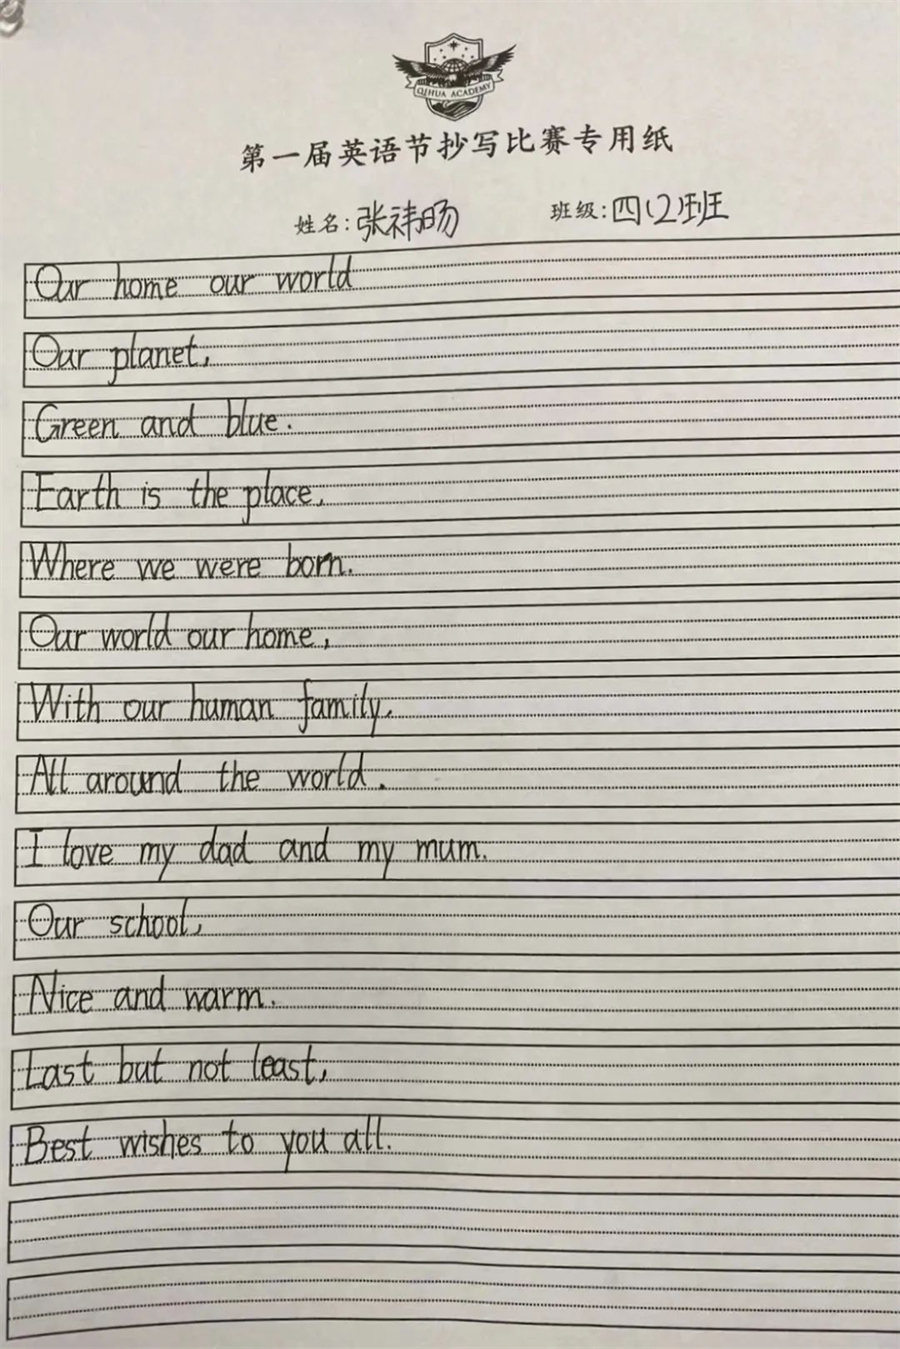 QIHUA ACADEMY
第一届英语节抄写比赛专用纸
姓名:张祎旸 班级:四(2)班
Our home our world
Our planet,
Green and blue.
Earth is the place,
Where we were born.
Our world our home,
With our human family,
All around the world.
I love my dad and my mum.
Our school,
Nice and warm.
Last but not least,
Best wishes to you all.